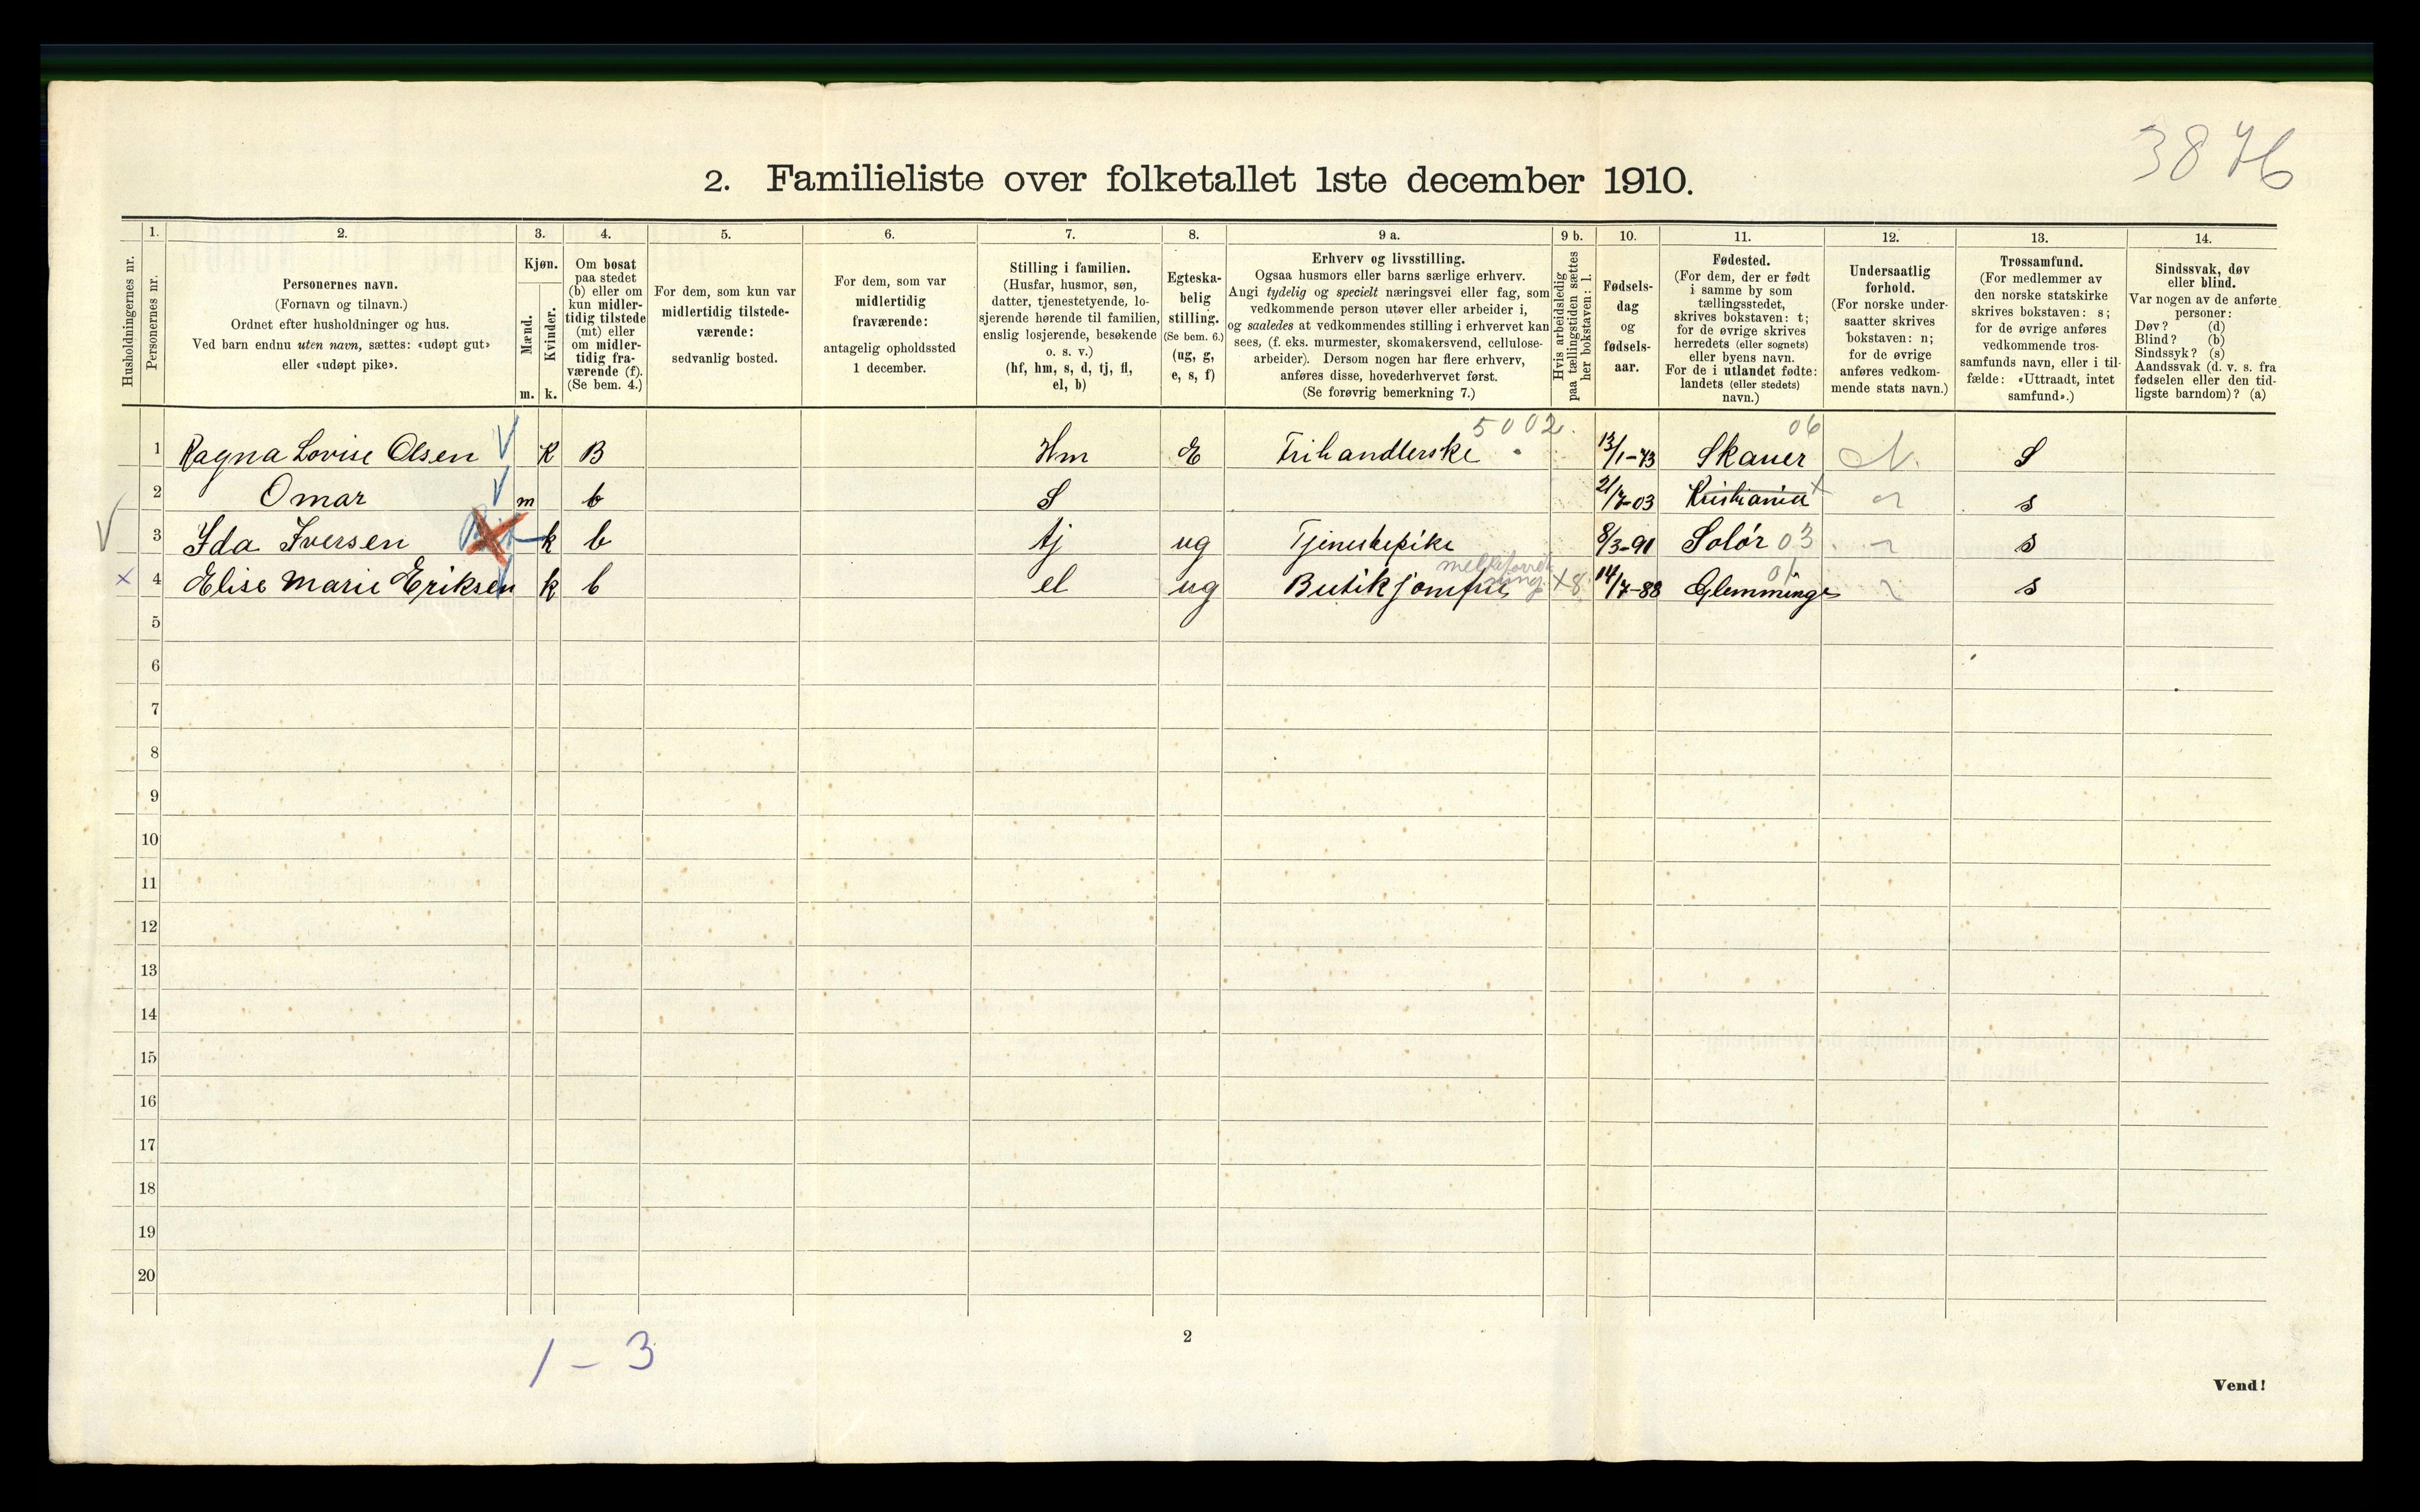 3876
2. Familieliste over folketallet 1ste december 1910.
Husholdningernes nr.
1.
Personernes nr.
2.
Personernes navn.
(Fornavn og tilnavn.)
Ordnet efter husholdninger og hus.
Ved barn endnu uten navn, sættes: «udøpt gut»
eller «udøpt pike».
3.
Kjøn.
Mænd.
Kvinder.
m. k.
4.
Om bosat
paa stedet
(b) eller om
kun midler-
tidig tilstede
(mt) eller
om midler-
tidig fra-
værende (f).
(Se bem. 4.)
5.
For dem, som kun var
midlertidig tilstede-
værende:
sedvanlig bosted.
6.
For dem, som var
midlertidig
fraværende:
antagelig opholdssted
1 december.
7.
Stilling i familien.
(Husfar, husmor, søn,
datter, tjenestetyende, lo-
sjerende hørende til familien,
enslig losjerende, besøkende
o. s. v.)
(hf, hm, s, d, tj, fl,
el, b)
8.
Egteska-
belig
stilling.
(Se bem. 6.)
(ug, g,
e, s, f)
9 a.
Erhverv og livsstilling.
Ogsaa husmors eller barns særlige erhverv.
Angi tydelig og specielt næringsvei eller fag, som
vedkommende person utøver eller arbeider i,
og saaledes at vedkommendes stilling i erhvervet kan
sees, (f. eks. murmester, skomakersvend, cellulose-
arbeider). Dersom nogen har flere erhverv,
anføres disse, hovederhvervet først.
(Se forøvrig bemerkning 7.)
9 b.
Hvis arbeidsledig
paa tællingstiden sættes
her bokstaven: l.
10.
Fødsels-
dag
og
fødsels-
aar.
11.
Fødested.
(For dem, der er født
i samme by som
tællingsstedet,
skrives bokstaven: t;
for de øvrige skrives
herredets (eller sognets)
eller byens navn.
For de i utlandet fødte:
landets (eller stedets)
navn.)
12.
Undersaatlig
forhold.
(For norske under-
saatter skrives
bokstaven: n;
for de øvrige
anføres vedkom-
mende stats navn.)
13.
Trossamfund.
(For medlemmer av
den norske statskirke
skrives bokstaven: s;
for de øvrige anføres
vedkommende tros-
samfunds navn, eller i til-
fælde: «Uttraadt, intet
samfund».)
14.
Sindssvak, døv
eller blind.
Var nogen av de anførte
personer:
Døv? (d)
Blind? (b)
Sindssyk? (s)
Aandssvak (d. v. s. fra
fødselen eller den tid-
ligste barndom)? (a)
5002. 06
1 Ragna Lovise Olsen K B Hm E Frihandlerske 13/1-73 Skauer N. S
2 Omar m b S 21/7-03 Kristiania n s
3 Ida Iversen k b tj ug Tjenestepike 8/3-91 Solór 03 n s
01
x 4 Elise Marie Eriksen k b el ug Butikjomfru x8 14/7-88 Glemminge n s
5
6
7
8
9
10
11
12
13
14
15
16
17
18
19
20
1-3
2
Vend!